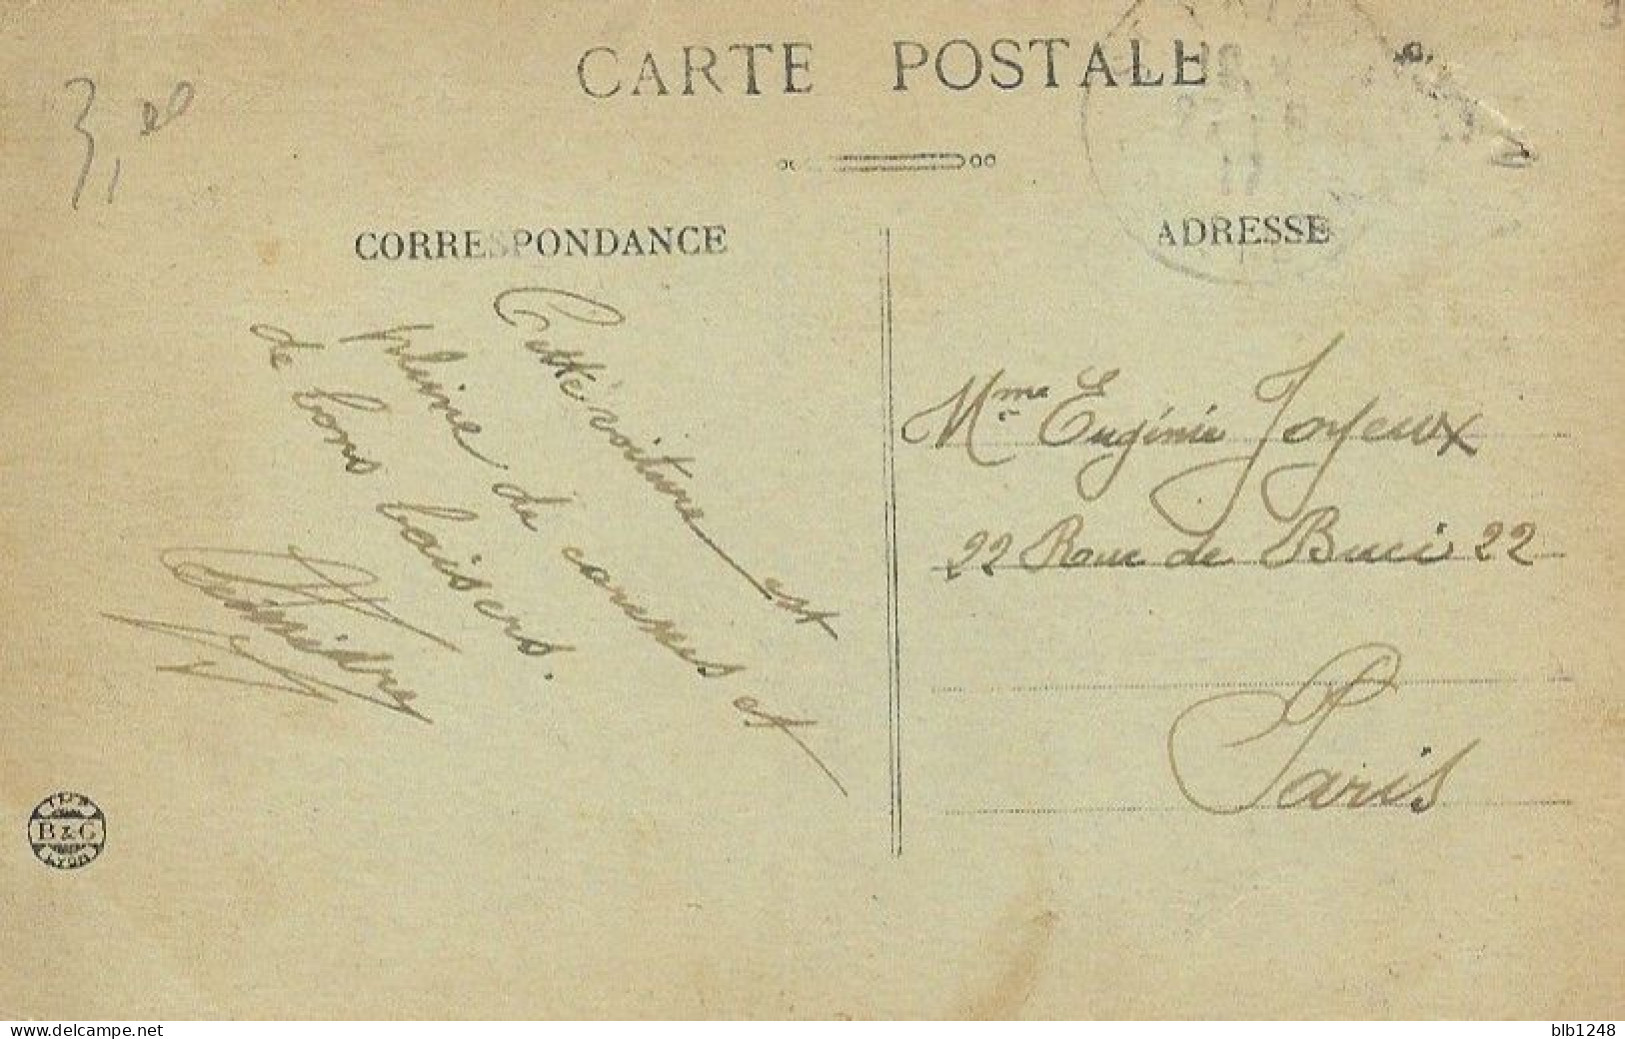 CARTE POSTALE
3,
CORRESPONDANCE
Cette voiture est
pleine de caresses et
de bons baisers.
ADRESSE
Mme Eugénie Joyeux
22 Rue de Buci 22
Paris
IMP
B & G
LYON
delcampe.net
blb1248